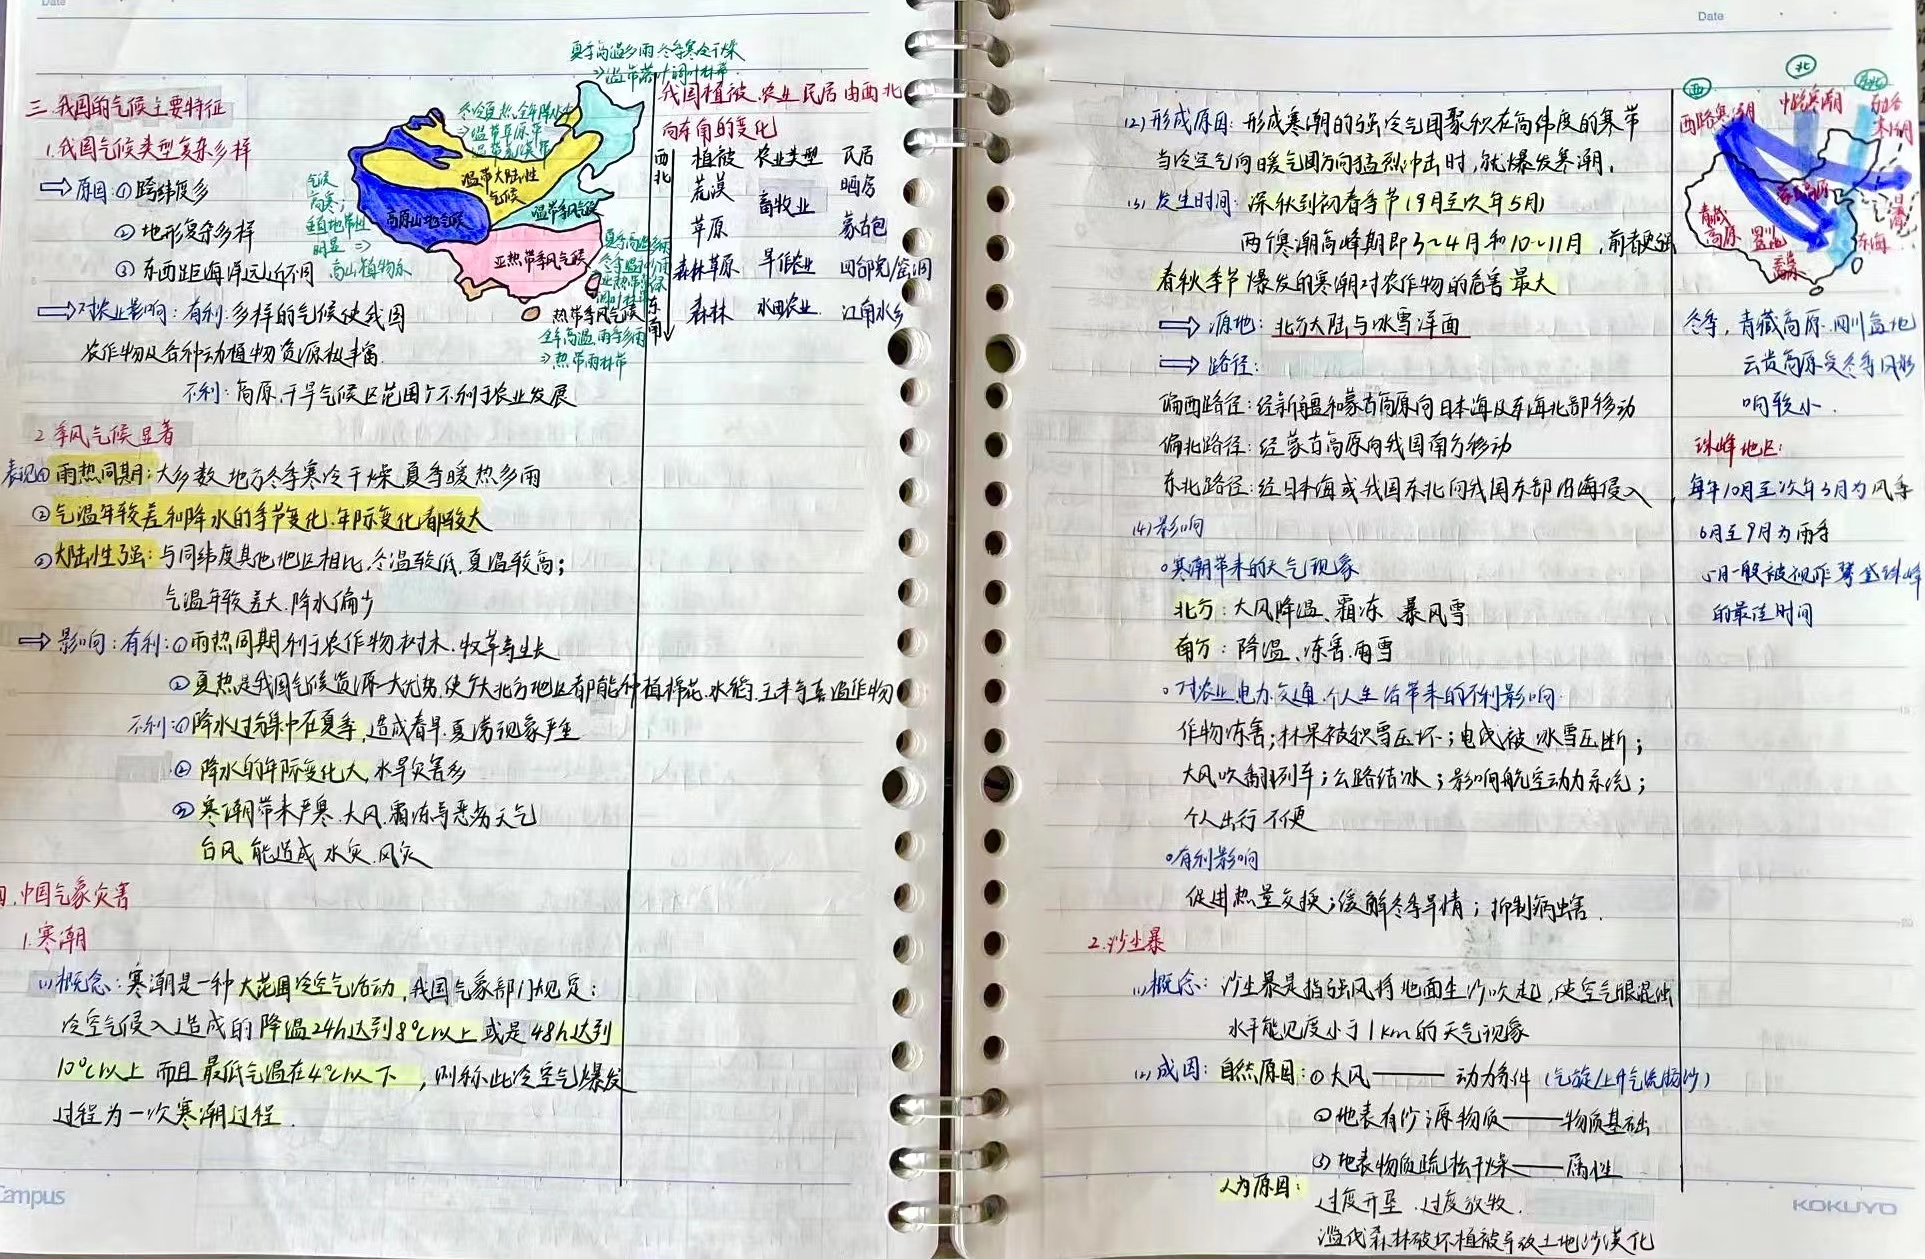 Date
三.我国的气候主要特征
1.我国气候类型复杂多样
⇒原因:①跨纬度多
②地形复杂多样
③东西距海洋远近不同
⇒对农业影响:有利:多样的气候使我国
农作物及各种动植物资源极丰富.
不利:高原,干旱气候区范围广不利于农业发展
夏季高温多雨冬季寒冷干燥
⇒温带落叶阔叶林带
冬冷夏热,全年降水少
⇒温带草原带
温带荒漠带
气候
高寒;
垂直地带性
明显⇒
高山植物永
温带大陆性
气候
高原山地气候
温带季风气候
亚热带季风气候
热带季风气候
全年高温,雨季多雨
⇒热带雨林带
我国植被.农业.民居由西北
向东南的变化
西北
植被 农业类型 民居
荒漠 畜牧业 晒房
草原 蒙古包
森林草原 旱作农业 四合院/窑洞
森林 水田农业. 江南水乡
东南
2.季风气候显著
表现①雨热同期:大多数地方冬季寒冷干燥夏季暖热多雨
②气温年较差和降水的季节变化.年际变化都较大
③大陆性强:与同纬度其他地区相比,冬温较低.夏温较高;
气温年较差大.降水偏少
⇒影响:有利:①雨热同期利于农作物.树木.牧草等生长
②夏热是我国气候资源一大优势,使广大北方地区都能种植棉花.水稻.玉米等喜温作物
不利:①降水过于集中在夏季,造成春旱.夏涝现象严重
②降水的年际变化大,水旱灾害多
③寒潮带来严寒.大风.霜冻等恶劣天气
台风 能造成水灾.风灾
四.中国气象灾害
1.寒潮
(1)概念:寒潮是一种大范围冷空气活动,我国气象部门规定:
冷空气侵入造成的降温24h达到8℃以上或是48h达到
10℃以上 而且最低气温在4℃以下,则称此冷空气爆发
过程为一次寒潮过程.
Campus
Date
(2)形成原因:形成寒潮的强冷气团聚积在高纬度的寒带
当冷空气向暖气团方向猛烈冲击时,就爆发寒潮.
(3)发生时间:深秋到初春季节(9月至次年5月)
两个寒潮高峰期即3~4月和10~11月,前者更强
春秋季节爆发的寒潮对农作物的危害最大
⇒源地:北方大陆与冰雪洋面
⇒路径:
偏西路径:经新疆和蒙古高原向日本海及东海北部移动
偏北路径:经蒙古高原向我国南方移动
东北路径:经日本海或我国东北向我国东部沿海侵入
(4)影响
○寒潮带来的天气现象
北方:大风降温、霜冻、暴风雪
南方:降温、冻害、雨雪
○对农业.电力.交通.个人生活带来的不利影响
作物冻害;林果被积雪压坏;电线被冰雪压断;
大风吹翻列车;公路结冰;影响航空动力系统;
个人出行不便
○有利影响
促进热量交换;缓解冬季旱情;抑制病虫害.
2.沙尘暴
(1)概念:沙尘暴是指强风将地面尘沙吹起,使空气很混浊
水平能见度小于1km的天气现象
(2)成因:自然原因:①大风——动力条件(气旋/上升气流扬沙)
②地表有沙源物质——物质基础
③地表物质疏松干燥——属性
人为原因:
过度开垦.过度放牧.
滥伐森林破坏植被导致土地沙漠化
西
北
东北
西路寒潮
中路寒潮
东路寒潮
蒙古高原
青藏高原
四川
云贵
日本海
东海
冬季,青藏高原.四川盆地
云贵高原受冬季风影
响较小.
珠峰地区:
每年10月至次年3月为风季
6月至9月为雨季
5月一般被视作攀登珠峰
的最佳时间
KOKUYO